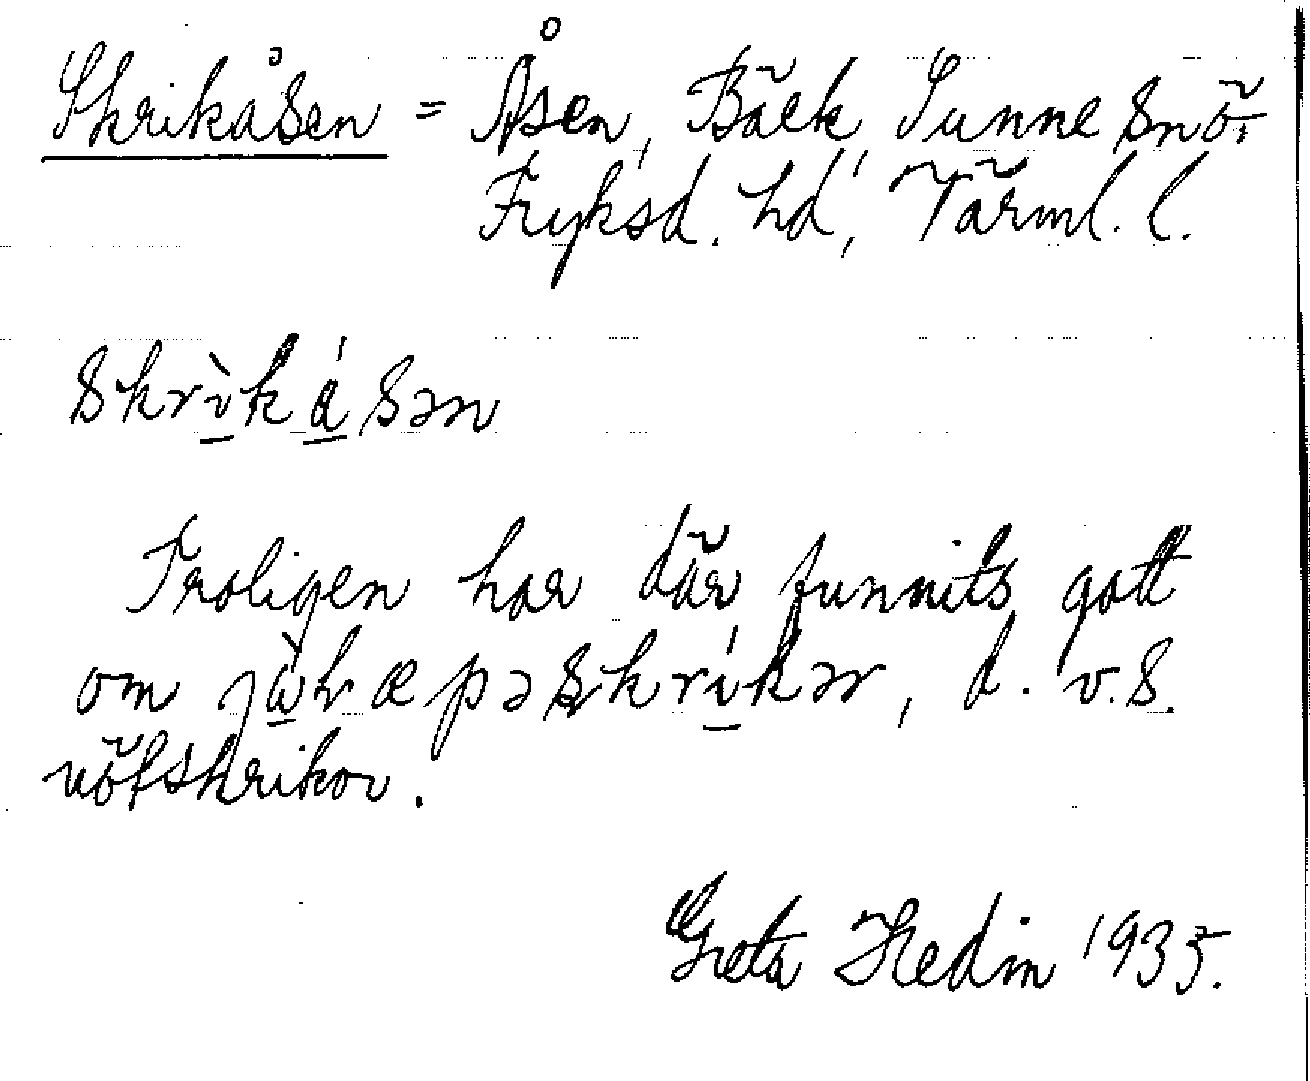 Skrikåsen = Åsen, Bäck, Sunne snö.
Fryksd. hd, Värml. l.
skrìkásən
Troligen har där funnits gott
om jàlræpəskríkər, d. v. s.
nötskrikor.
Greta Hedin 1935.